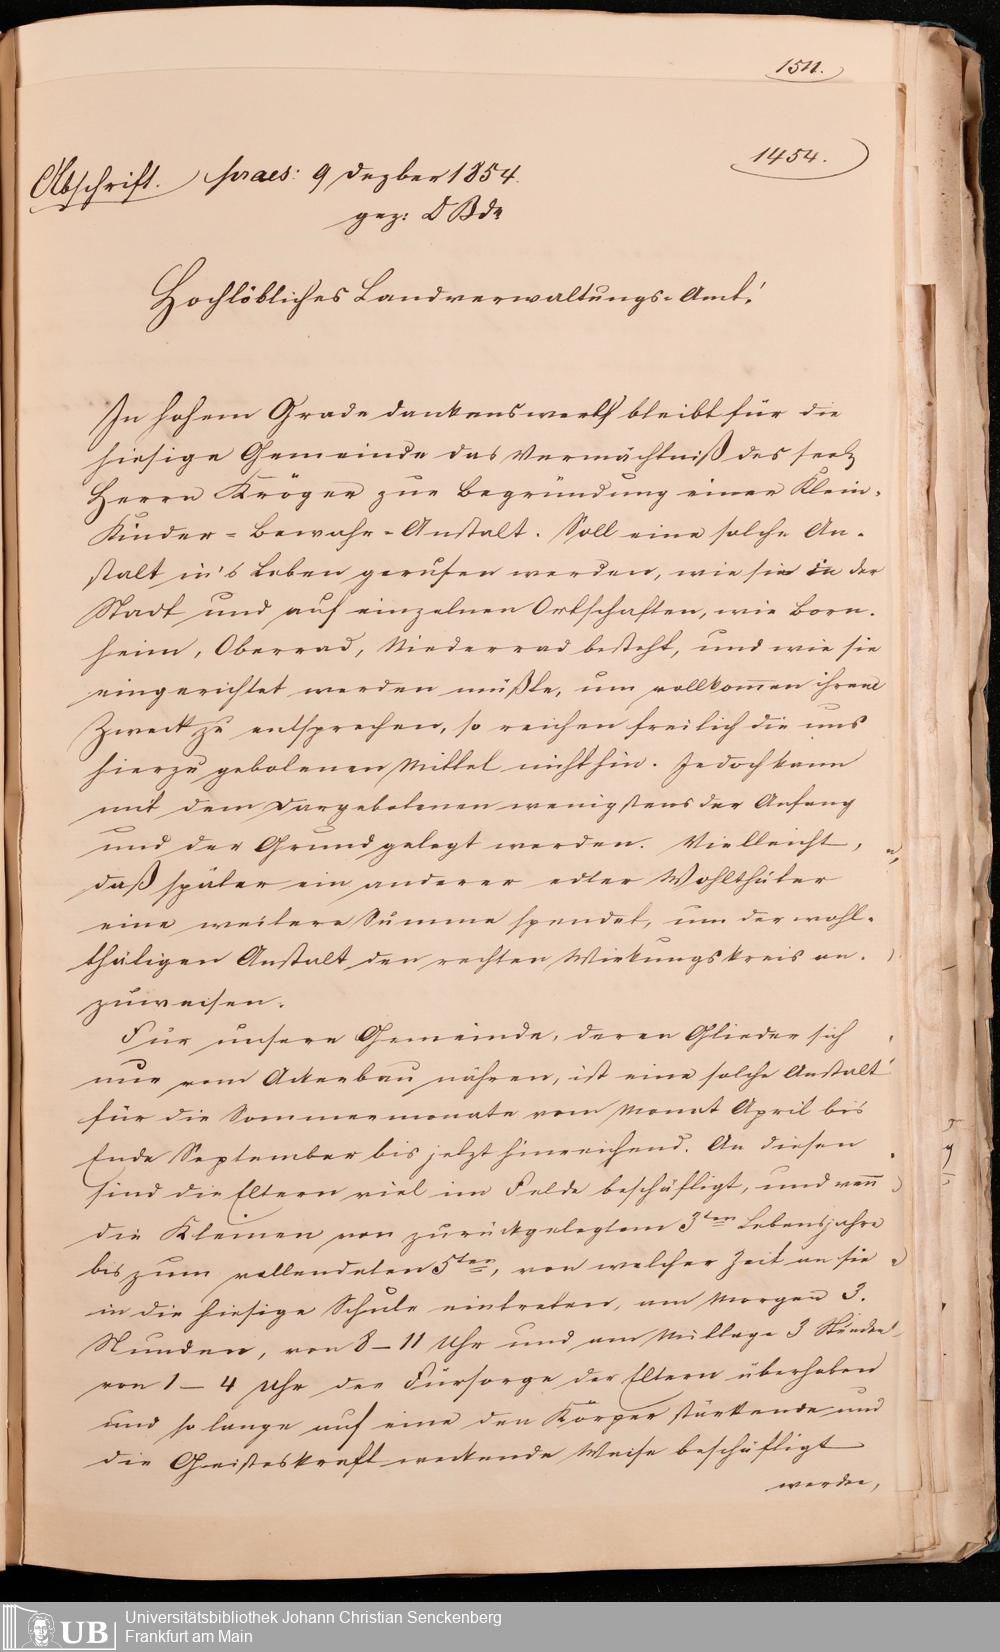 1511.
1454.
Abschrift. praes: 9 Dezber 1854.
gez:
Hochlöbliches Landverwaltungs-Amt!
In hohem Grade dankenswerth bleibt für die
hiesige Gemeinde das Vermächtniß des seel
Herrn Kröger zur Begründung einer Klein-
Kinder-Bewahr-Anstalt. Soll eine solche An-
stalt in's Leben gerufen werden, wie sie in der
Stadt und auf einzelnen Ortschaften, wie Born-
heim, Oberrad, Niederrad besteht, und wie sie
eingerichtet werden müßte, um vollkommen ihrem
Zweck zu entsprechen, so reichen freilich die uns
hierzu gebotenen Mittel nicht hin. Jedoch kann
mit dem Dargebotenen wenigstens der Anfang
und der Grund gelegt werden. Vielleicht,
daß später ein anderer edler Wohlthäter
eine weitere Summe spendet, um der wohl-
thätigen Anstalt den rechten Wirkungskreis an-
zuweisen.
Für unsere Gemeinde, deren Glieder sich
nur vom Ackerbau nähren, ist eine solche Anstalt
für die Sommermonate vom Monat April bis
Ende September bis jetzt hinreichend. An diesen
sind die Eltern viel im Felde beschäftigt, und wenn
die Kleinen von zurückgelegtem 3ten Lebensjahre
bis zum vollendeten 5ten, von welcher Zeit an sie
in die hiesige Schule eintreten, am Morgen 3.
Stunden, von 8–11 Uhr und am Mittage 3 Stunden
von 1–4 Uhr der Fürsorge der Eltern überhoben
und so lange auf eine den Körper stärkende und
die Geisteskraft weckende Weise beschäftigt
werden,
UB
Universitätsbibliothek Johann Christian Senckenberg
Frankfurt am Main